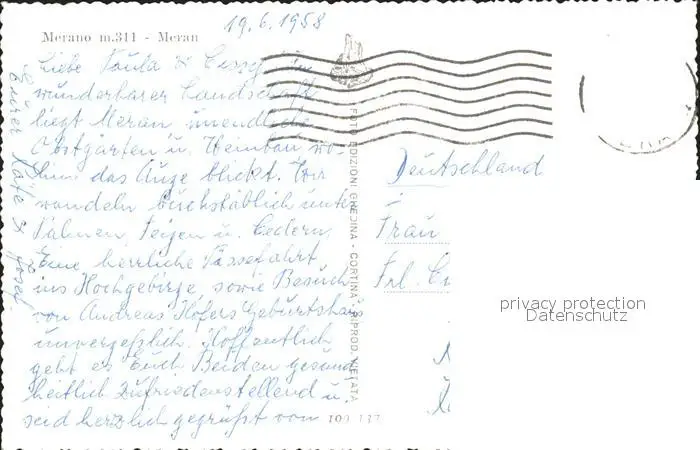 19.6.1958
Merano m.311 - Meran
Liebe Paula & Cissy! In
wunderbarer Landschaft
liegt Meran, unendliche
Obstgärten u. Weinbau wo-
hin das Auge blickt. Wir
wandeln buchstäblich unter
Palmen, Feigen u. Cedern.
Eine herrliche Pässefahrt
ins Hochgebirge, sowie Besuch
von Andreas Hofers Geburtshau
unvergeßlich. Hoffentlich
geht es Euch Beiden gesund
heitlich zufriedenstellend u.
seid herzlich gegrüßt von
Eurer Käte & Josef
FOTO EDIZIONI GHEDINA - CORTINA - RIPROD. VIETATA
109 137
Deutschland
Frau
Frl.
privacy protection
Datenschutz